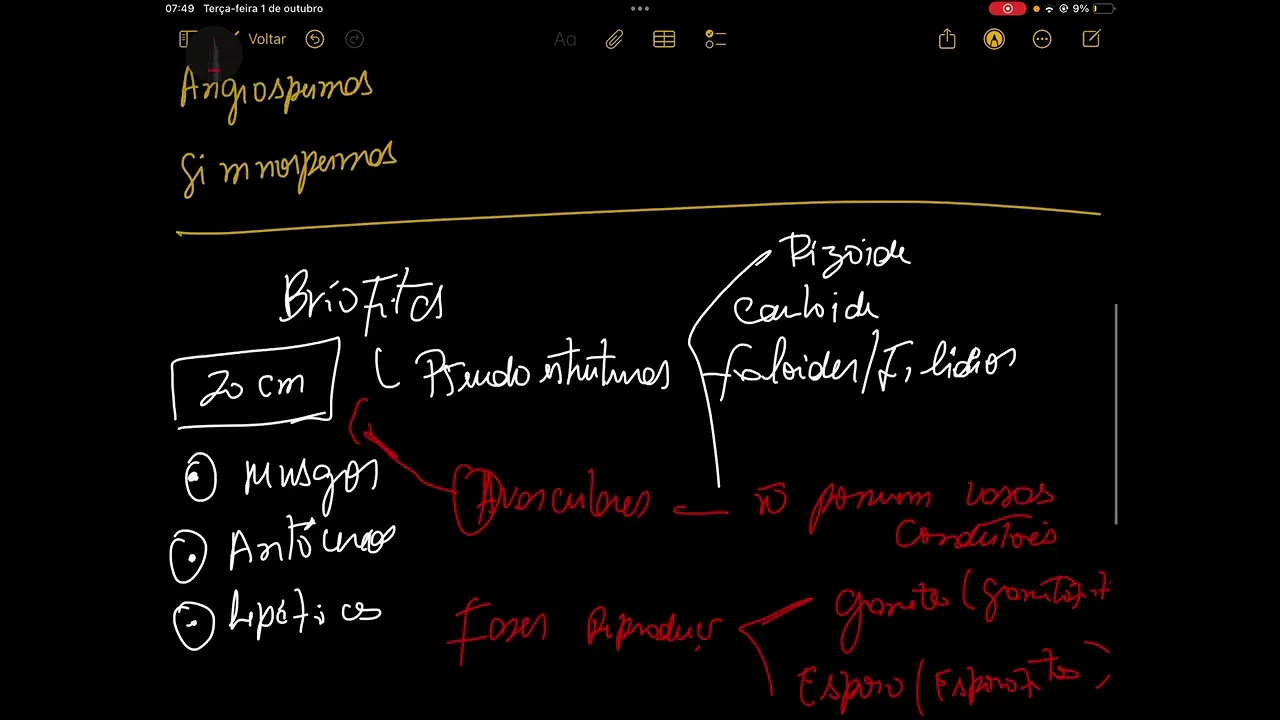 07:49 Terça-feira 1 de outubro
9%
Voltar
Aa
Angiospermas
Gimnospermas
Rizoide
Briofitas
Cauloide
20 cm
Pseudo estruturas
faloides/Filidios
musgos
Avasculares
ñ possuem vasos
condutores
Antóceros
hepáticas
Fases Reproduç
gameta (gametófit
Esporo (Esporofitos)